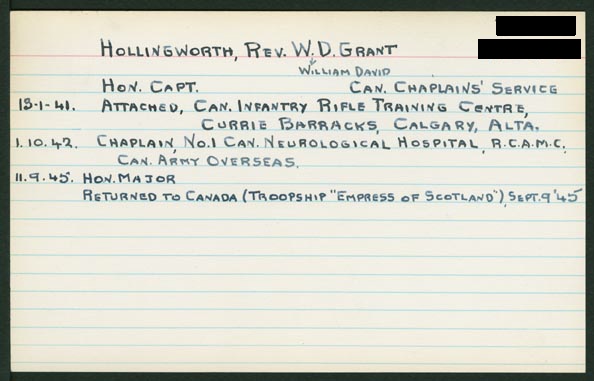 HOLLINGWORTH, REV. W.D. GRANT
WILLIAM DAVID
HON. CAPT. CAN. CHAPLAINS' SERVICE
13-1-41. ATTACHED, CAN. INFANTRY RIFLE TRAINING CENTRE,
CURRIE BARRACKS, CALGARY, ALTA.
1.10.42. CHAPLAIN, NO.1 CAN. NEUROLOGICAL HOSPITAL, R.C.A.M.C.
CAN. ARMY OVERSEAS.
11.9.45. HON. MAJOR
RETURNED TO CANADA (TROOPSHIP "EMPRESS OF SCOTLAND"), SEPT. 9 '45